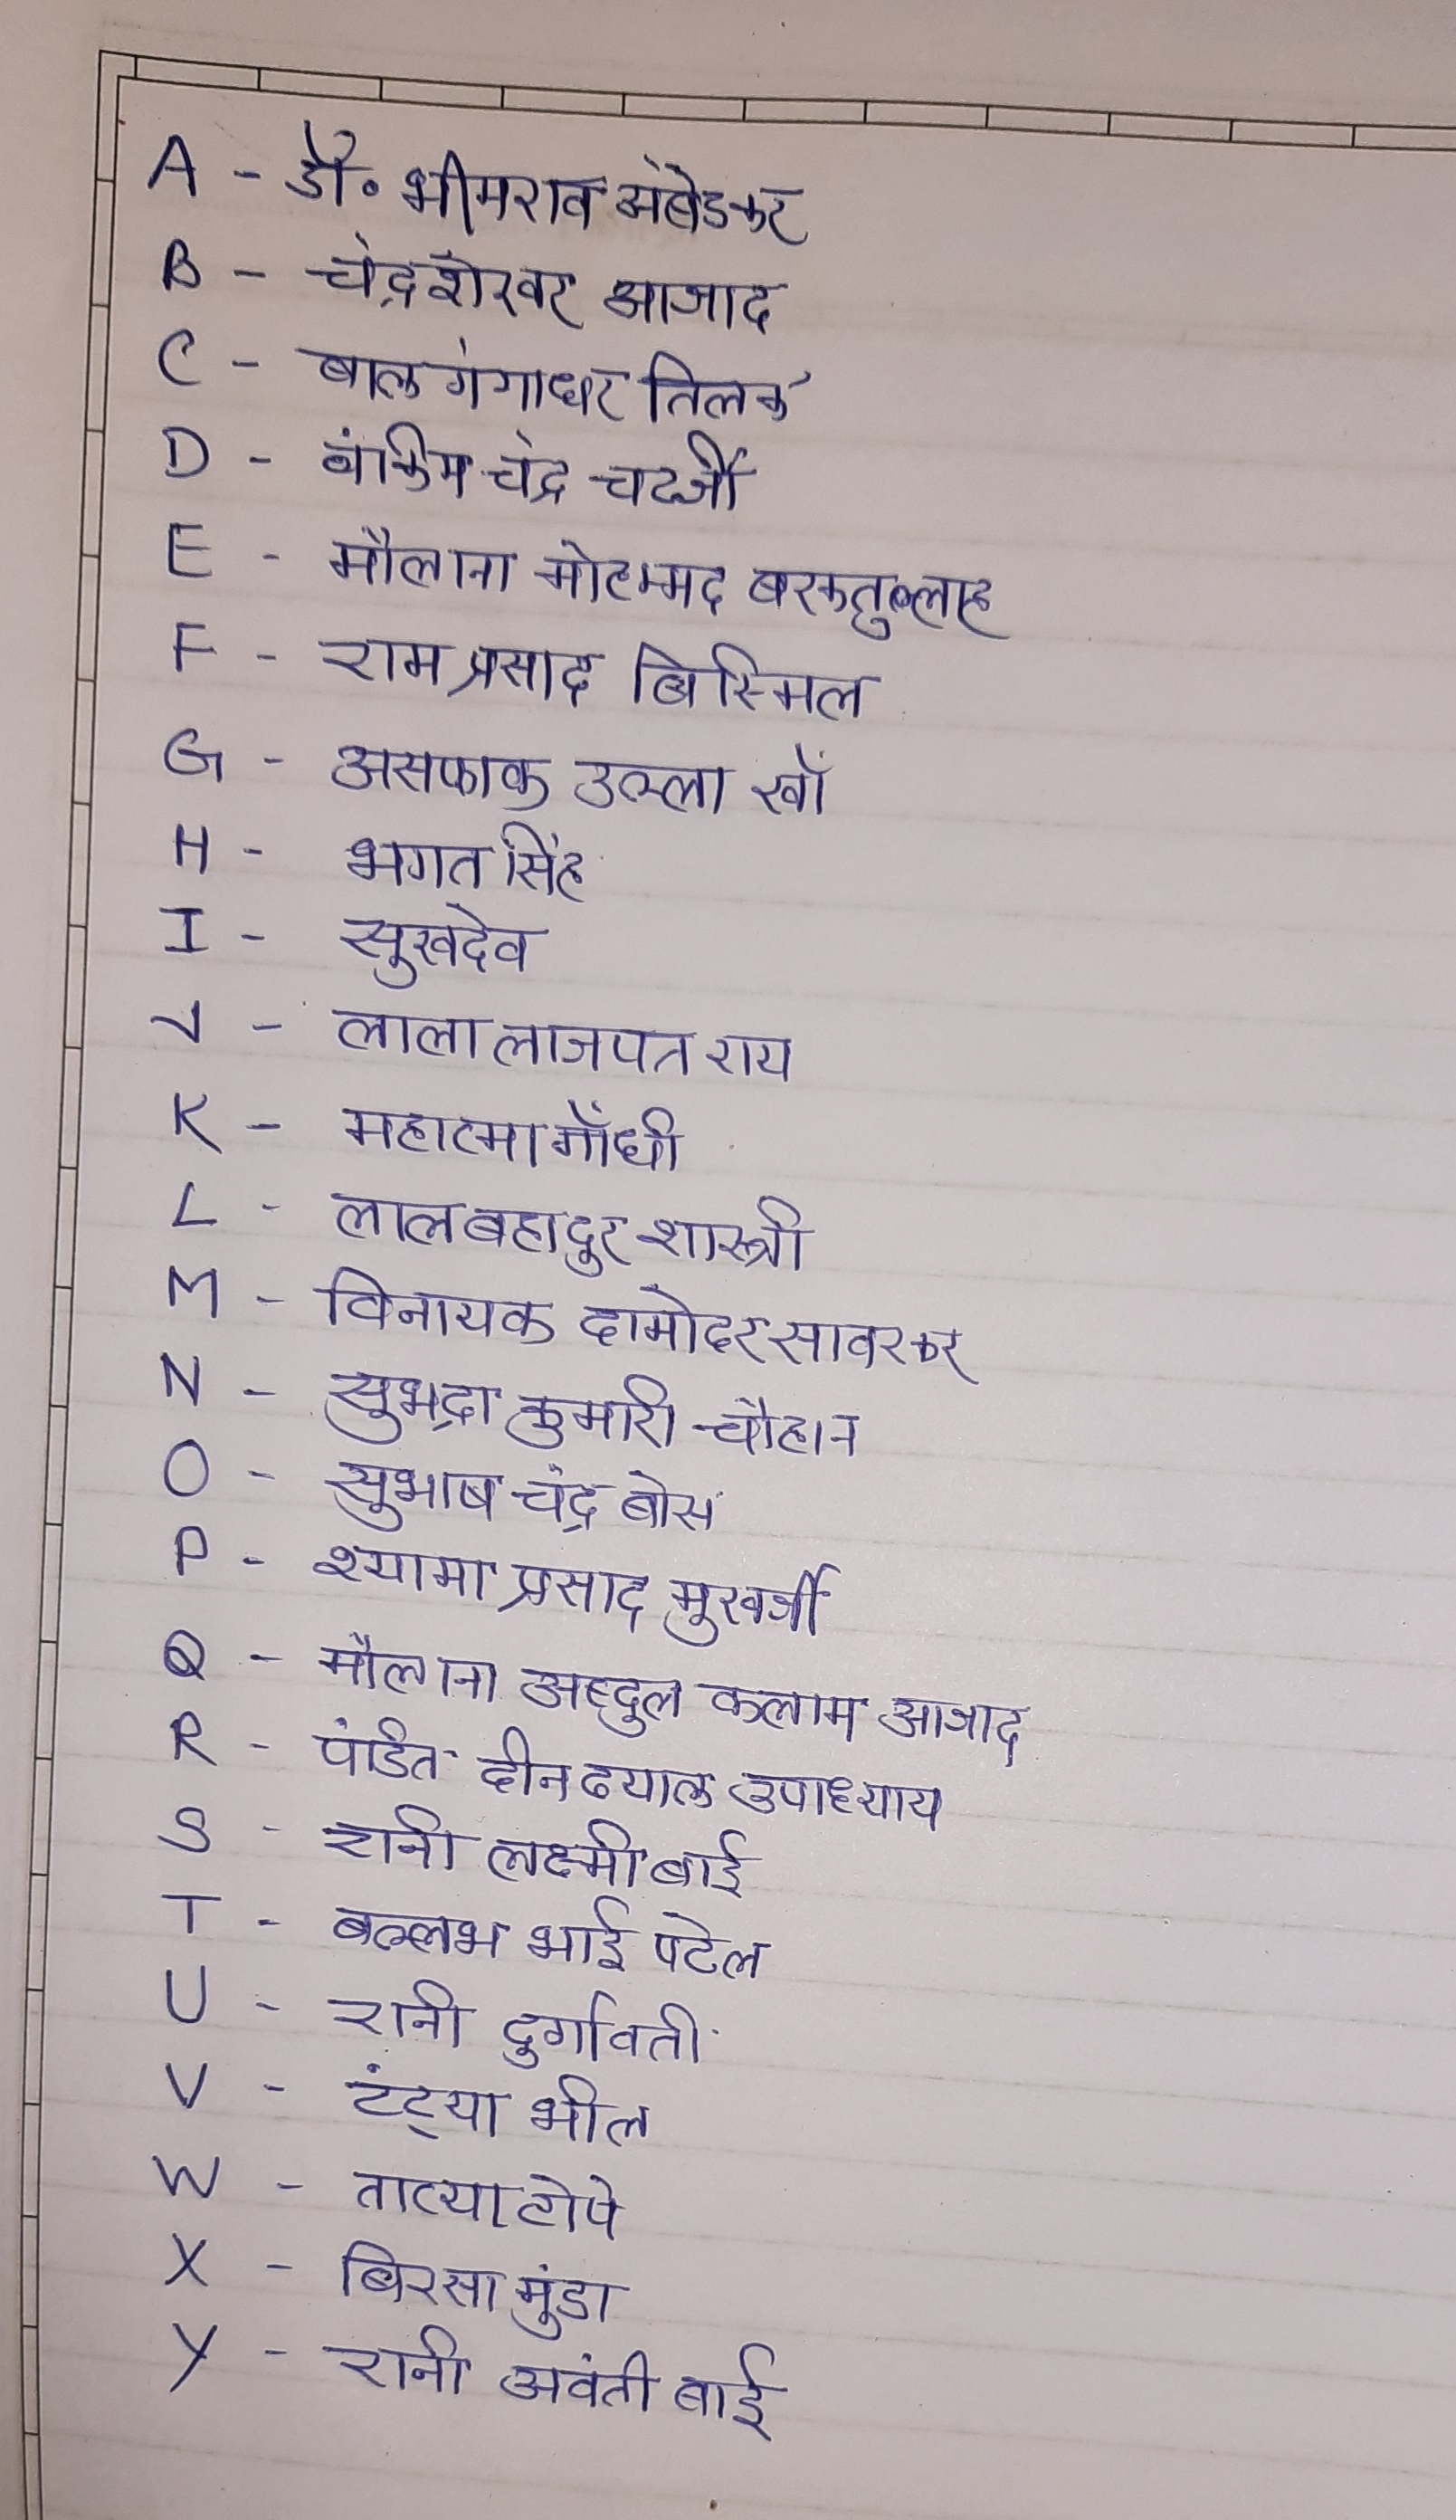 A - डॉ. भीमराव अंबेडकर
B - चंद्रशेखर आजाद
C - बाल गंगाधर तिलक
D - बंकिम चंद्र चटर्जी
E - मौलाना मोहम्मद बरकतुल्लाह
F - राम प्रसाद बिस्मिल
G - असफाक उल्ला खाँ
H - भगत सिंह
I - सुखदेव
J - लाला लाजपत राय
K - महात्मा गाँधी
L - लाल बहादुर शास्त्री
M - विनायक दामोदर सावरकर
N - सुभद्रा कुमारी चौहान
O - सुभाष चंद्र बोस
P - श्यामा प्रसाद मुखर्जी
Q - मौलाना अब्दुल कलाम आजाद
R - पंडित दीनदयाल उपाध्याय
S - रानी लक्ष्मी बाई
T - बल्लभ भाई पटेल
U - रानी दुर्गावती
V - टंट्या भील
W - तात्या टोपे
X - बिरसा मुंडा
Y - रानी अवंती बाई